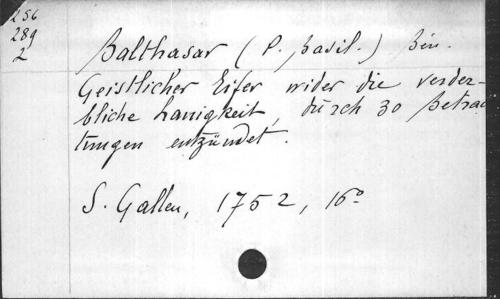 256
289
2
Balthasar (P. Basil.) Ben.
Geistlicher Eifer wider die verder-
bliche Lauigkeit, durch 30 Betrac
tungen entzündet.
S. Gallen, 1752, 16°